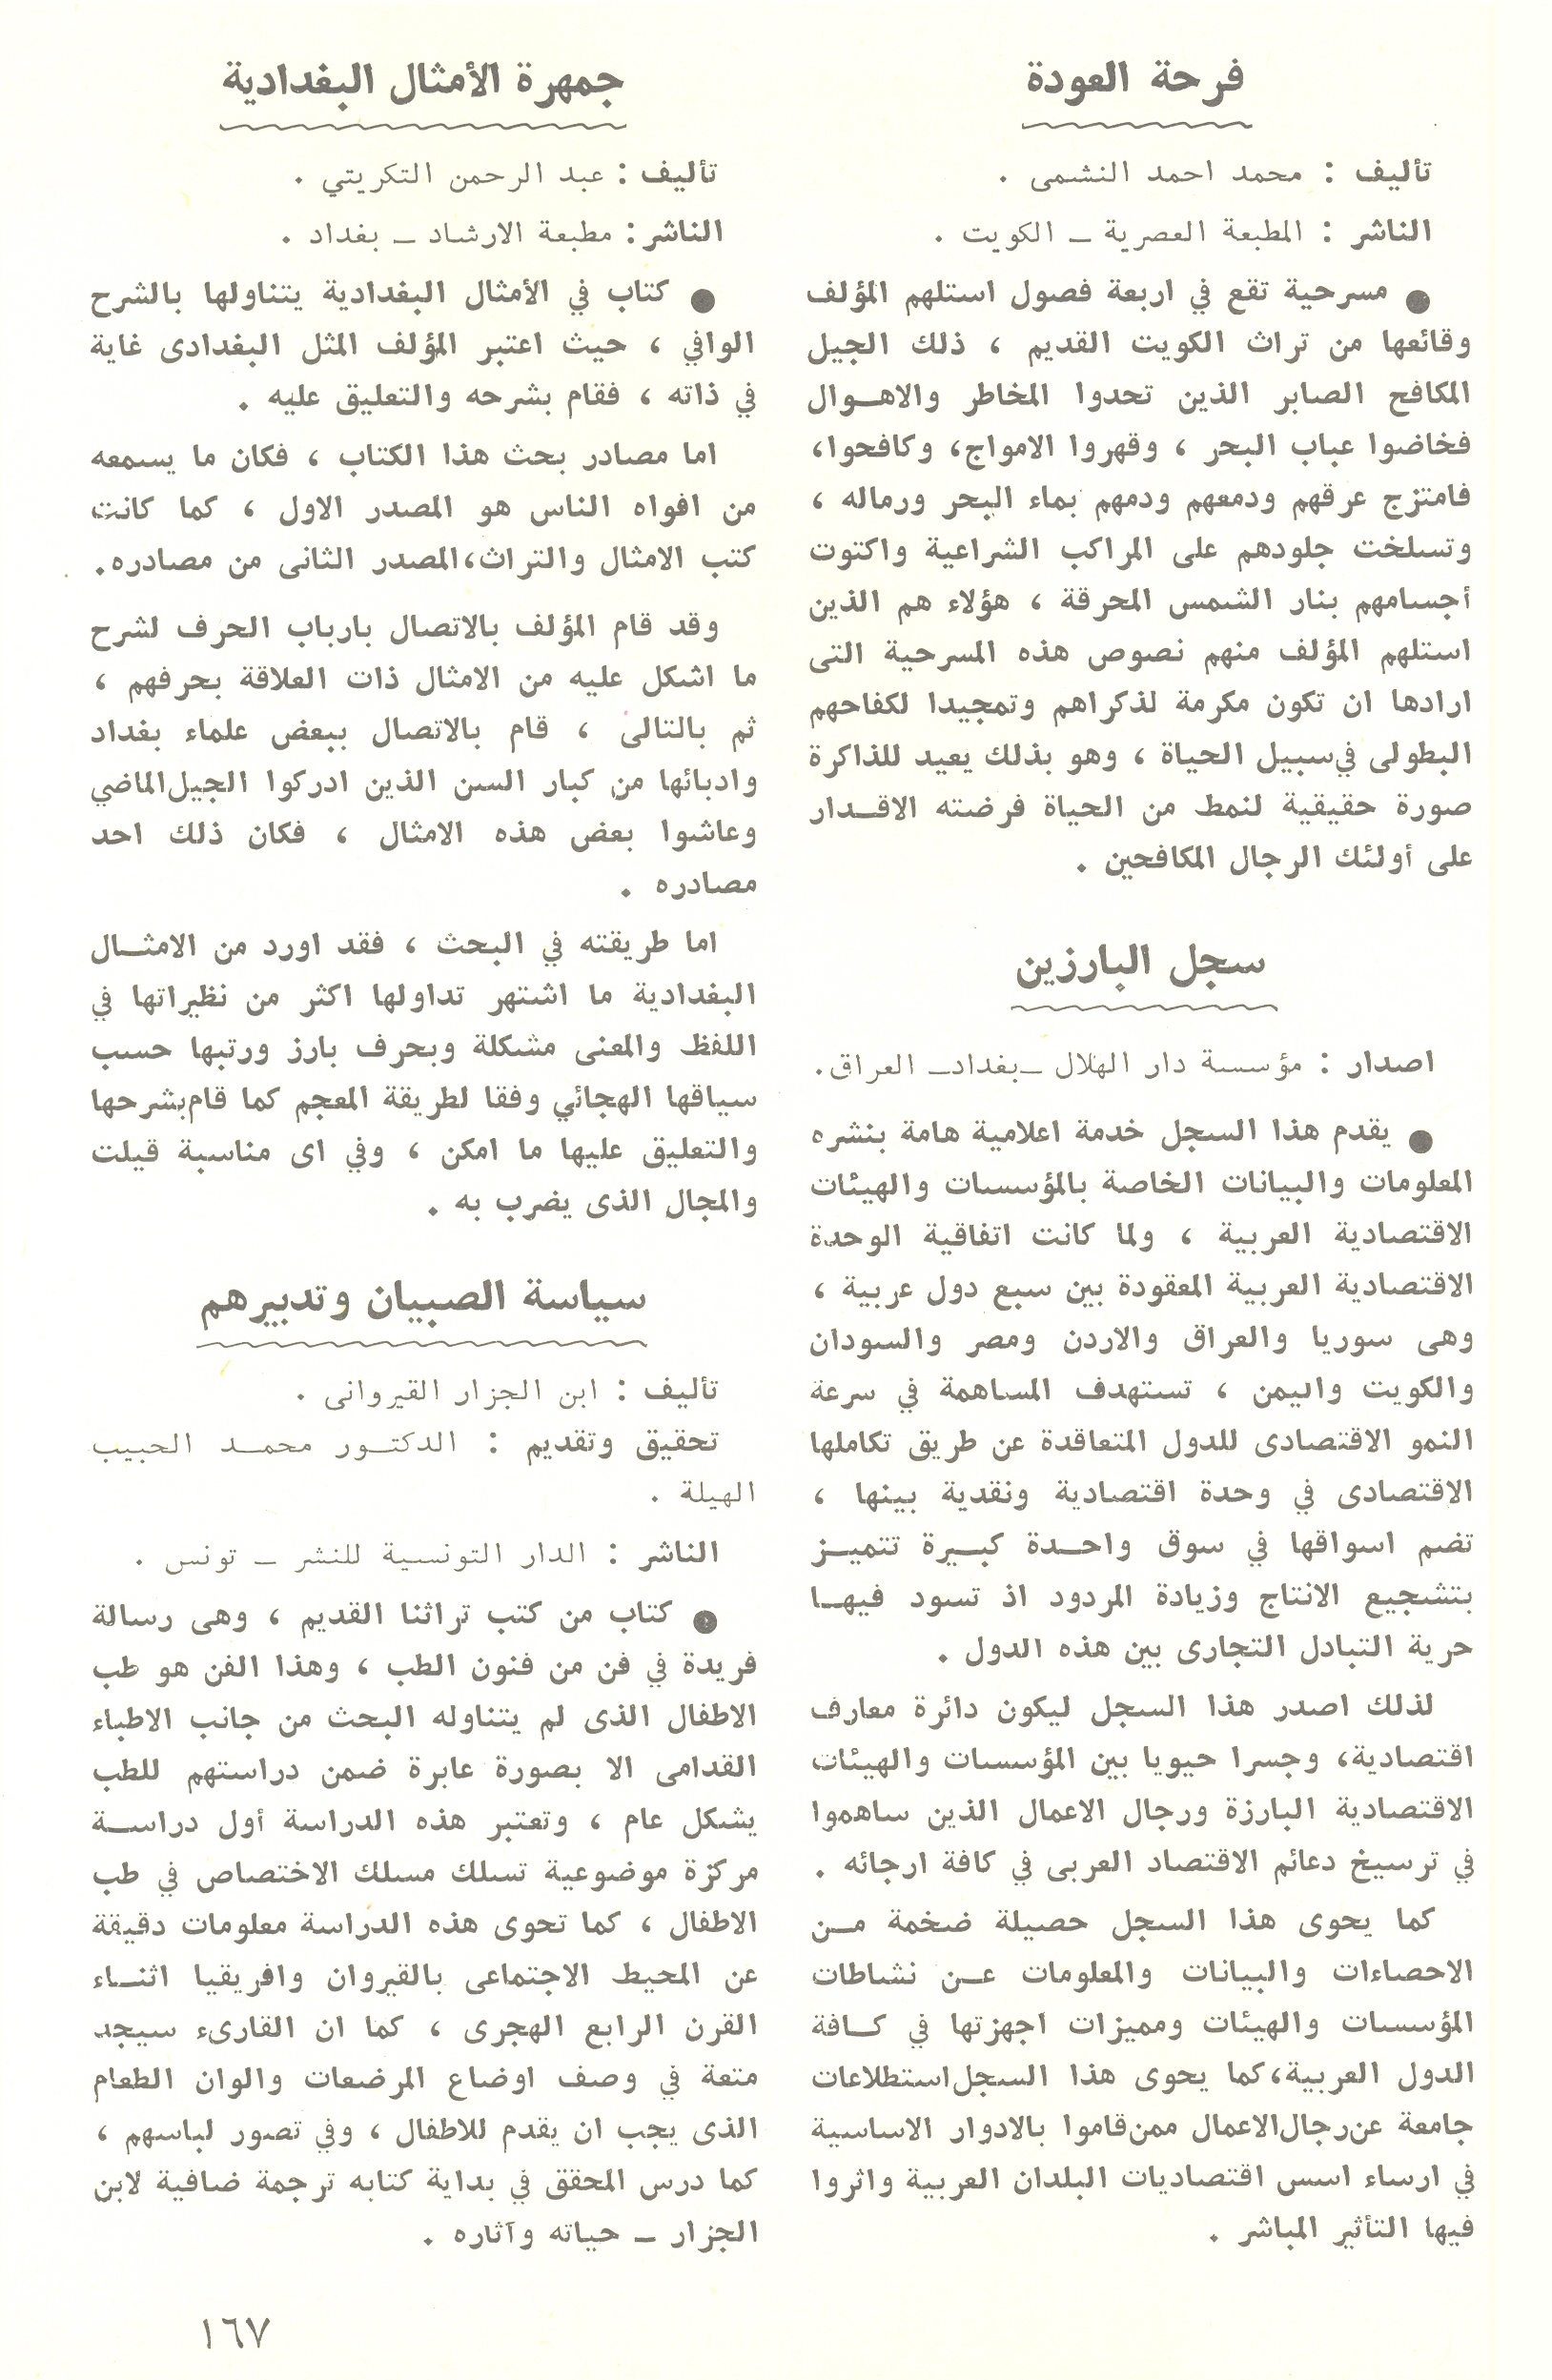 فرحة العودة
تأليف : محمد احمد النشمى .
الناشر : المطبعة العصرية ــ الكويت .
● مسرحية تقع في اربعة فصول استلهم المؤلف
وقائعها من تراث الكويت القديم ، ذلك الجيل
المكافح الصابر الذين تحدوا المخاطر والاهــوال
فخاضوا عباب البحر ، وقهروا الامواج، وكافحوا،
فامتزج عرقهم ودمعهم ودمهم بماء البحر ورماله ،
وتسلخت جلودهم على المراكب الشراعية واكتوت
أجسامهم بنار الشمس المحرقة ، هؤلاء هم الذين
استلهم المؤلف منهم نصوص هذه المسرحية التى
ارادها ان تكون مكرمة لذكراهم وتمجيدا لكفاحهم
البطولى في سبيل الحياة ، وهو بذلك يعيد للذاكرة
صورة حقيقية لنمط من الحياة فرضته الاقــدار
على أولئك الرجال المكافحين .
سجل البارزين
اصدار : مؤسسة دار الهلال ــبغدادــ العراق.
● يقدم هذا السجل خدمة اعلامية هامة بنشره
المعلومات والبيانات الخاصة بالمؤسسات والهيئات
الاقتصادية العربية ، ولما كانت اتفاقية الوحدة
الاقتصادية العربية المعقودة بين سبع دول عربية ،
وهى سوريا والعراق والاردن ومصر والسودان
والكويت واليمن ، تستهدف المساهمة في سرعة
النمو الاقتصادى للدول المتعاقدة عن طريق تكاملها
الاقتصادى في وحدة اقتصادية ونقدية بينها ،
تضم اسواقها في سوق واحــدة كبــيرة تتميــز
بتشجيع الانتاج وزيادة المردود اذ تسود فيهــا
حرية التبادل التجارى بين هذه الدول .
لذلك اصدر هذا السجل ليكون دائرة معارف
اقتصادية، وجسرا حيويا بين المؤسسات والهيئات
الاقتصادية البارزة ورجال الاعمال الذين ساهموا
في ترسيخ دعائم الاقتصاد العربى في كافة ارجائه .
كما يحوى هذا السجل حصيلة ضخمة مــن
الاحصاءات والبيانات والمعلومات عــن نشاطات
المؤسسات والهيئات ومميزات اجهزتها في كــافة
الدول العربية،كما يحوى هذا السجل استطلاعات
جامعة عن رجال الاعمال ممن قاموا بالادوار الاساسية
في ارساء اسس اقتصاديات البلدان العربية واثروا
فيها التأثير المباشر .
جمهرة الأمثال البغدادية
تأليف : عبد الرحمن التكريتي .
الناشر : مطبعة الارشاد ــ بغداد .
● كتاب في الأمثال البغدادية يتناولها بالشرح
الوافي ، حيث اعتبر المؤلف المثل البغدادى غاية
في ذاته ، فقام بشرحه والتعليق عليه .
اما مصادر بحث هذا الكتاب ، فكان ما يسمعه
من افواه الناس هو المصدر الاول ، كما كانت
كتب الامثال والتراث،المصدر الثانى من مصادره.
وقد قام المؤلف بالاتصال بارباب الحرف لشرح
ما اشكل عليه من الامثال ذات العلاقة بحرفهم ،
ثم بالتالى ، قام بالاتصال ببعض علماء بغداد
وادبائها من كبار السن الذين ادركوا الجيل الماضي
وعاشوا بعض هذه الامثال ، فكان ذلك احد
مصادره .
اما طريقته في البحث ، فقد اورد من الامثــال
البغدادية ما اشتهر تداولها اكثر من نظيراتها في
اللفظ والمعنى مشكلة وبحرف بارز ورتبها حسب
سياقها الهجائي وفقا لطريقة المعجم كما قام بشرحها
والتعليق عليها ما امكن ، وفي اى مناسبة قيلت
والمجال الذى يضرب به .
سياسة الصبيان وتدبيرهم
تأليف : ابن الجزار القيروانى .
تحقيق وتقديم : الدكتــور محمــد الحبيب
الهيلة .
الناشر : الدار التونسية للنشر ــ تونس .
● كتاب من كتب تراثنا القديم ، وهى رسالة
فريدة في فن من فنون الطب ، وهذا الفن هو طب
الاطفال الذى لم يتناوله البحث من جانب الاطباء
القدامى الا بصورة عابرة ضمن دراستهم للطب
يشكل عام ، وتعتبر هذه الدراسة أول دراســة
مركزة موضوعية تسلك مسلك الاختصاص في طب
الاطفال ، كما تحوى هذه الدراسة معلومات دقيقة
عن المحيط الاجتماعى بالقيروان وافريقيا اثنــاء
القرن الرابع الهجرى ، كما ان القارىء سيجد
متعة في وصف اوضاع المرضعات والوان الطعام
الذى يجب ان يقدم للاطفال ، وفي تصور لباسهم ،
كما درس المحقق في بداية كتابه ترجمة ضافية لابن
الجزار ــ حياته وآثاره .
١٦٧